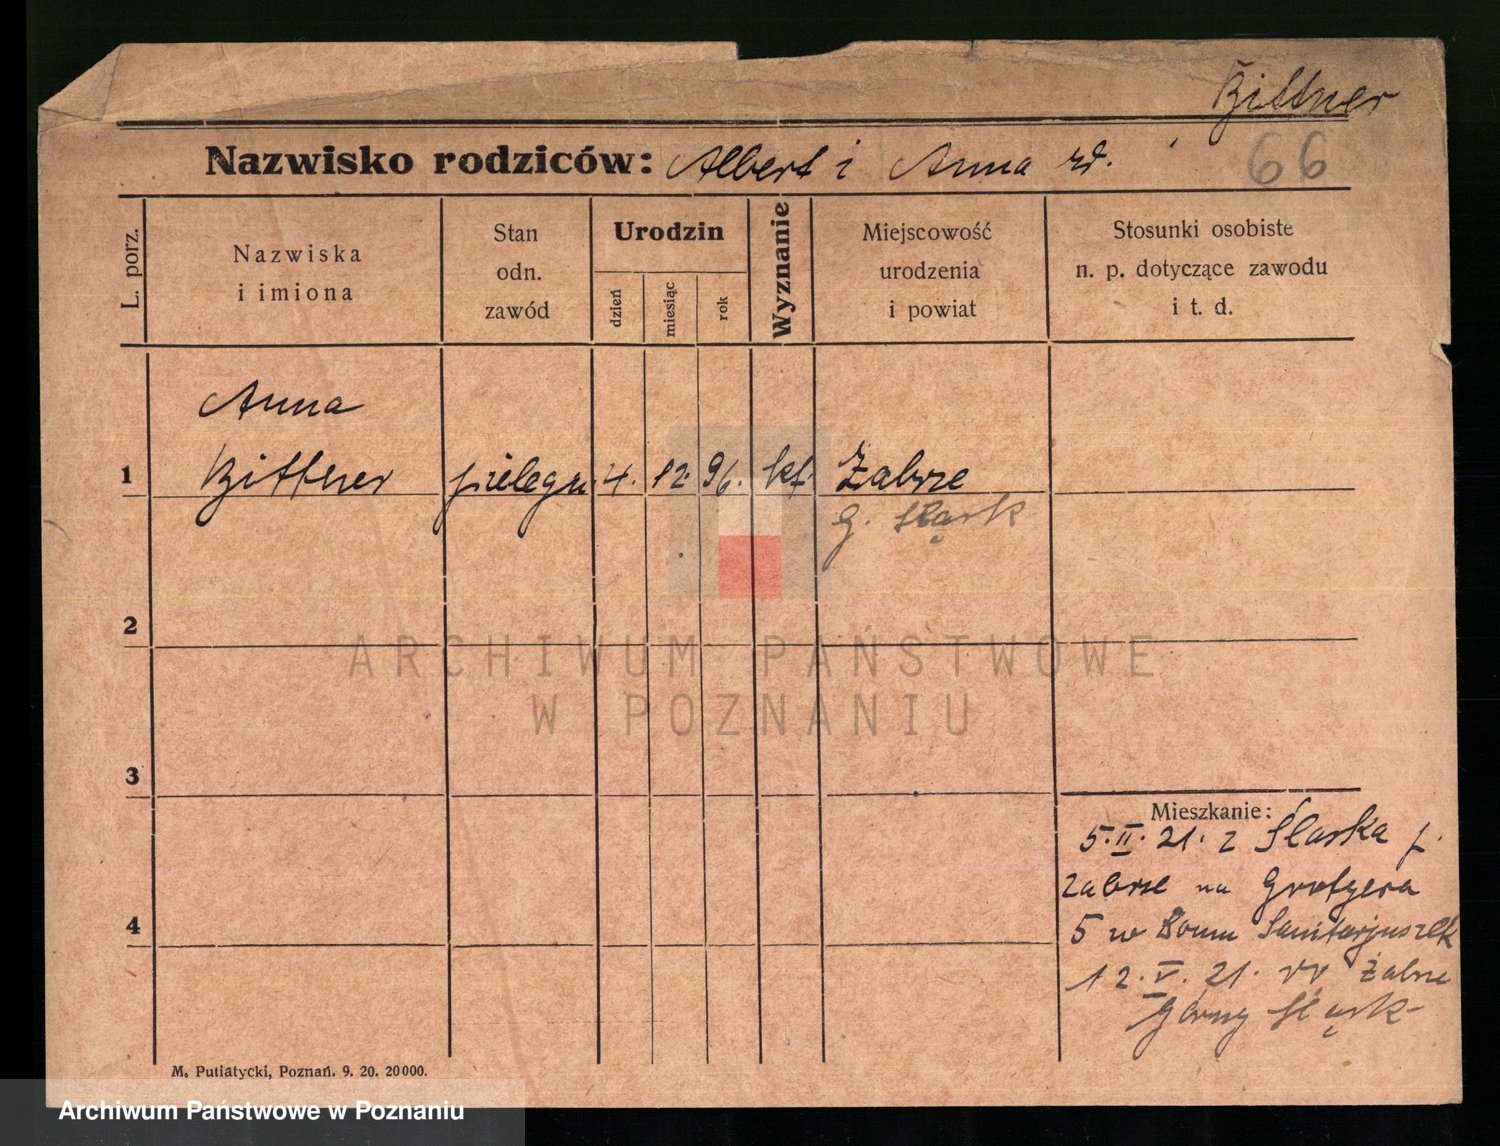 Bittner
Nazwisko rodziców: Albert i Anna rd.
66
L. porz.
Nazwiska
i imiona
Stan
odn.
zawód
Urodzin
dzień
miesiąc
rok
Wyznanie
Miejscowość
urodzenia
i powiat
Stosunki osobiste
n. p. dotyczące zawodu
i t. d.
Anna
1 Bittner pielegn. 4. 12. 96. kt. Zabrze
G. Śląsk
2
3
4
Mieszkanie:
5.II.21. z Śląska p.
Zabrze na Grotgera
5 w Domu Sanitarjuszek
12.V.21. Zabrze
Górny Śląsk
M. Putiatycki, Poznań. 9. 20. 20000.
ARCHIWUM PAŃSTWOWE
W POZNANIU
Archiwum Państwowe w Poznaniu